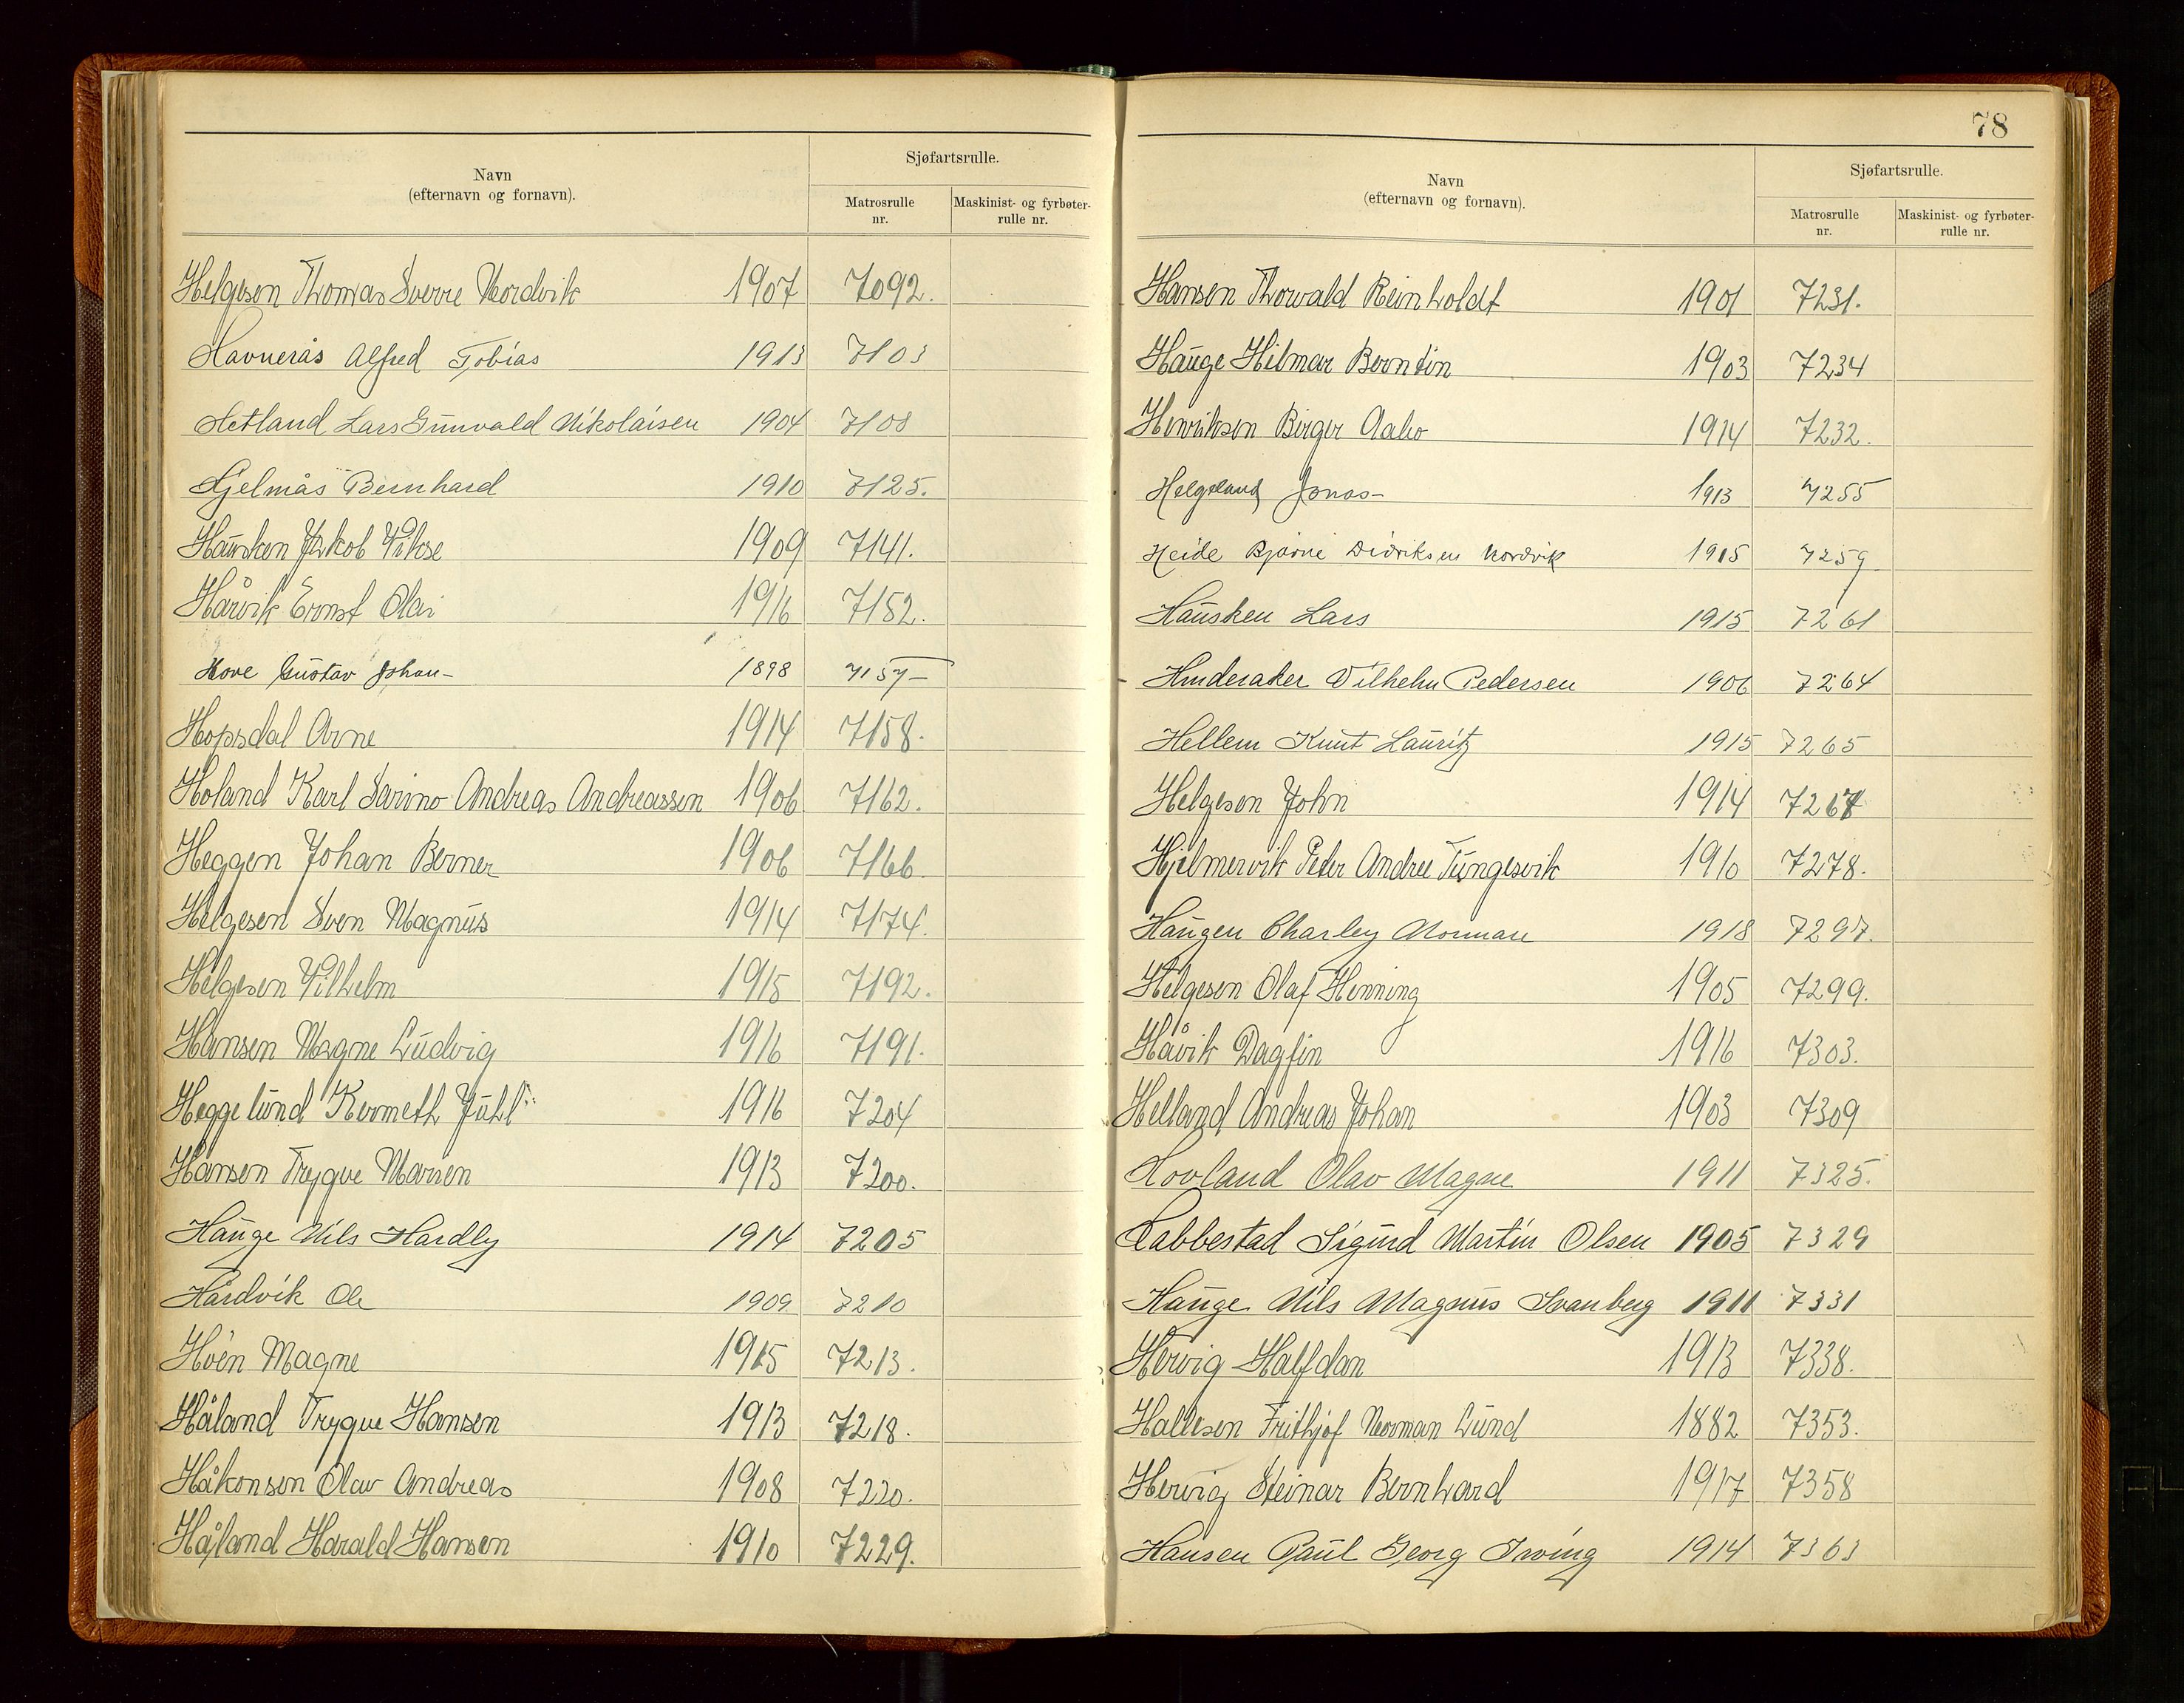 Navn
(efternavn og fornavn).
Sjøfartsrulle.
Matrosrulle nr.
Maskinist- og fyrbøter-rulle nr.
Helgesen Thomas Sverre Nordvik 1907 7092.
Havnerås Alfred Tobias 1913 7103
Hetland Lars Gunvald Nikolaisen 1904 7108
Hjelmås Bernhard 1910 7125.
Hausken Jakob Vikse 1909 7141.
Hårvik Ernst Olai 1916 7152.
Hove Gustav Johan- 1898 7157-
Hopsdal Arne 1914 7158.
Holand Karl Sarino Andreas Andreassen 1906 7162.
Heggen Johan Berner 1906 7166.
Helgesen Sven Magnus 1914 7174.
Helgesen Vilhelm 1915 7192.
Hansen Magne Ludvig 1916 7191.
Heggelund Kermeth Juhl 1916 7204
Hansen Trygve 1913 7200.
Hauge Nils Hardly 1914 7205
Hårdvik Ole 1909 7210
Høen Magne 1915 7213.
Håland Trygve Hansen 1913 7218.
Håkonsen Olav Andreas 1908 7220.
Håland Harald Hansen 1910 7229.
78
Navn
(efternavn og fornavn).
Sjøfartsrulle.
Matrosrulle nr.
Maskinist- og fyrbøter-rulle nr.
Hansen Thorvald Reinholdt 1901 7231.
Hauge Hilmar Berntin 1903 7234
Henriksen Birger 1914 7232.
Helgeland Jonas- 1913 7255
Heide Bjarne Didriksen Nordvik 1915 7259
Hausken Lars 1915 7261
Hinderaker Vilhelm Pedersen 1906 7264
Hellem Knut Lauritz 1915 7265
Helgesen John 1914 7267
Hjelmervik Peter Andree Tungesvik 1910 7278.
Haugen Charley Norman 1918 7297.
Helgesen Olaf Henning 1905 7299.
Håvik Dagfin 1916 7303.
Helland Andreas Johan 1903 7309
Hovland Olav Magne 1911 7325.
Labbestad Sigurd Martin Olsen 1905 7329
Hauge Nils Magnus Svanberg 1911 7331
Hervig Halfdan 1913 7338.
Hallesen Frithjof Norman Lund 1882 7353.
Hervig Steinar Bernhard 1917 7358
Hansen Paul Georg Irving 1914 7363